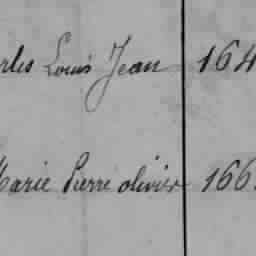 rles Louis Jean 164
Marie Pierre olivier 166